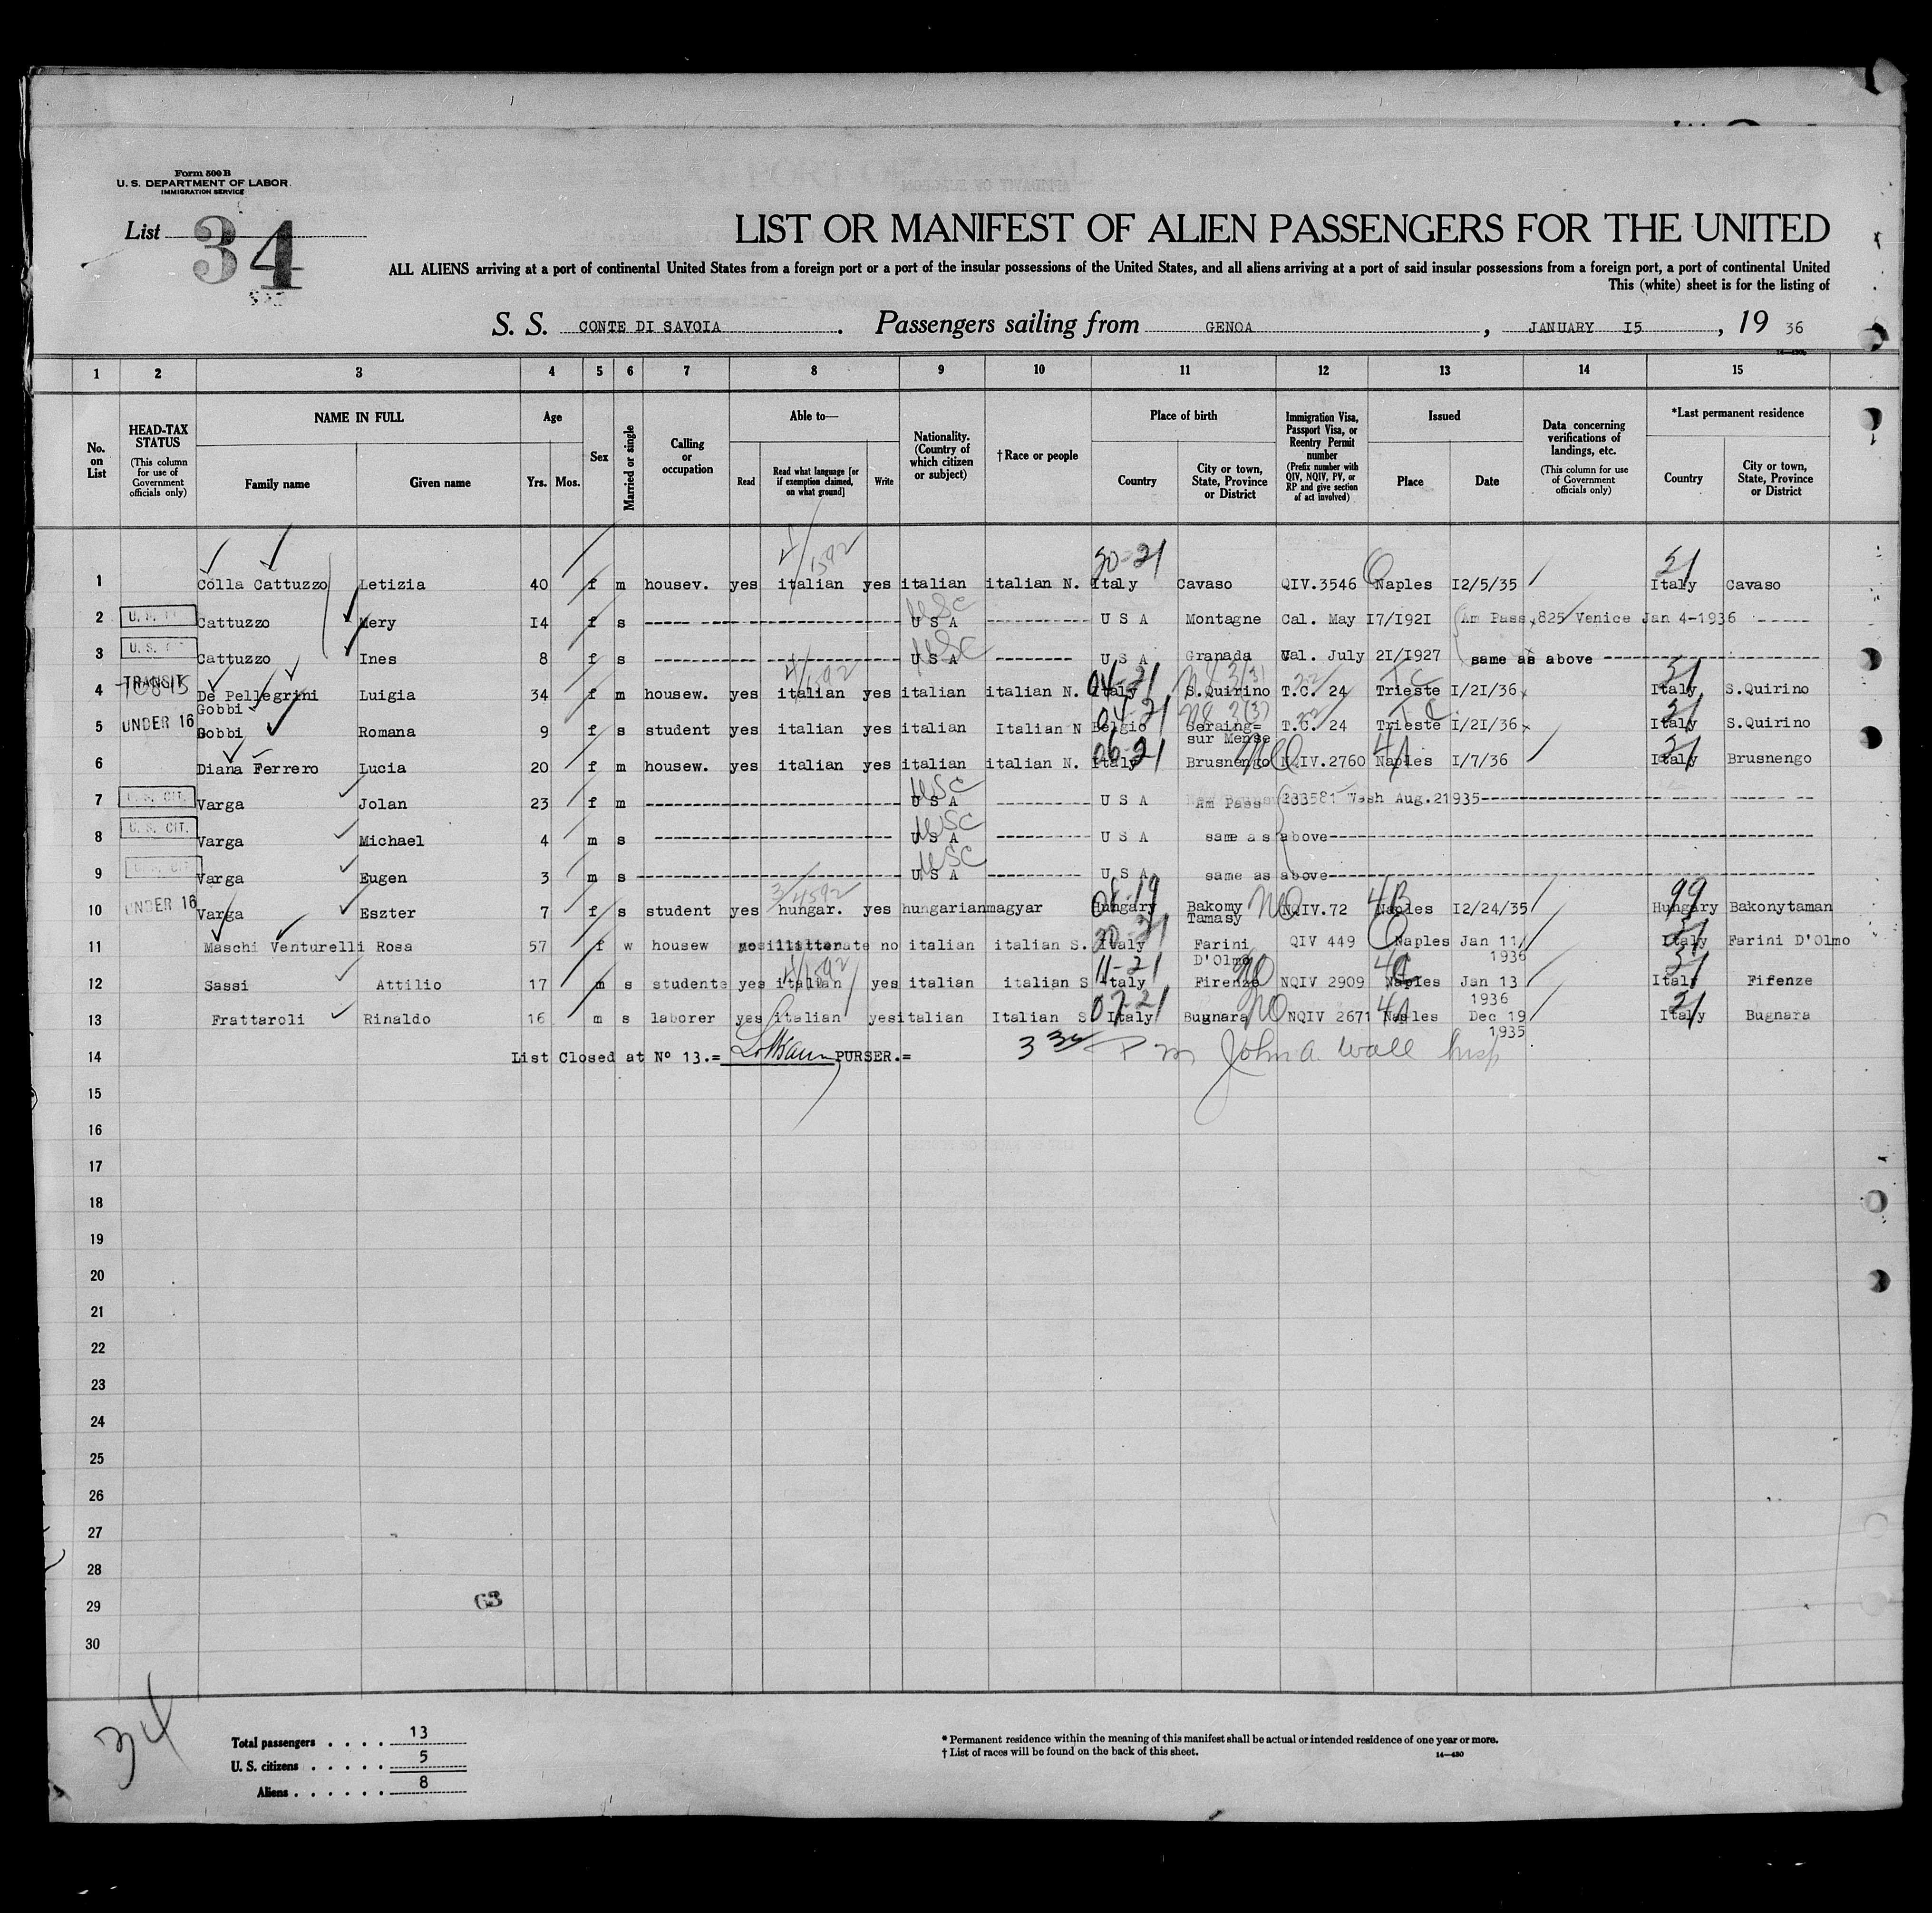 Form 500 B
U. S. DEPARTMENT OF LABOR
IMMIGRATION SERVICE
List 34
LIST OR MANIFEST OF ALIEN PASSENGERS FOR THE UNITED
ALL ALIENS arriving at a port of continental United States from a foreign port or a port of the insular possessions of the United States, and all aliens arriving at a port of said insular possessions from a foreign port, a port of continental United
This (white) sheet is for the listing of
S. S. CONTE DI SAVOIA. Passengers sailing from GENOA, JANUARY I5, 19 36
1 2 3 4 5 6 7 8 9 10 11 12 13 14 15
No. on List
HEAD-TAX STATUS (This column for use of Government officials only)
NAME IN FULL
Family name
Given name
Age
Yrs. Mos.
Sex
Married or single
Calling or occupation
Able to—
Read
Read what language [or if exemption claimed, on what ground]
Write
Nationality. (Country of which citizen or subject)
†Race or people
Place of birth
Country
City or town, State, Province or District
Immigration Visa, Passport Visa, or Reentry Permit number (Prefix number with QIV, NQIV, PV, or RP and give section of act involved)
Issued
Place
Date
Data concerning verifications of landings, etc. (This column for use of Government officials only)
*Last permanent residence
Country
City or town, State, Province or District
1 Colla Cattuzzo Letizia 40 f m housev. yes italian yes italian italian N. Italy Cavaso QIV.3546 Naples I2/5/35 Italy Cavaso
2 Cattuzzo Mery I4 f s USC U S A U S A Montagne Cal. May I7/I92I Am Pass 825 Venice Jan 4-1936
3 Cattuzzo Ines 8 f s USC U S A U S A Granada Cal. July 2I/I927 same as above
4 TRANSIT De Pellegrini Gobbi Luigia 34 f m housew. yes italian yes italian italian N. Italy S.Quirino T.C. 24 Trieste I/2I/36 Italy S.Quirino
5 UNDER 16 Gobbi Romana 9 f s student yes italian yes italian Italian N Belgio Seraing-sur Mense T.C. 24 Trieste I/2I/36 Italy S.Quirino
6 Diana Ferrero Lucia 20 f m housew. yes italian yes italian italian N. Italy Brusnengo NQIV.2760 Naples I/7/36 Italy Brusnengo
7 U. S. CIT. Varga Jolan 23 f m USC U S A U S A Am Pass 233581 Wash Aug.21935
8 U. S. CIT. Varga Michael 4 m s USC U S A U S A same as above
9 U. S. CIT Varga Eugen 3 m s USC U S A U S A same as above
10 UNDER 16 Varga Eszter 7 f s student yes hungar. yes hungarian magyar Hungary Bakomy Tamasy NQIV.72 Naples I2/24/35 Hungary Bakonytaman
11 Maschi Venturelli Rosa 57 f w housew no italian italian S. Italy Farini D'Olmo QIV 449 Naples Jan 11/ 1936 Italy Farini D'Olmo
12 Sassi Attilio 17 m s students yes italian yes italian italian S Italy Firenze NQIV 2909 Naples Jan 13 1936 Italy Fifenze
13 Frattaroli Rinaldo 16 m s laborer yes italian yes italian Italian S Italy Bugnara NQIV 2671 Naples Dec 19 1935 Italy Bugnara
14 List Closed at Nº 13.= PURSER.= John A. Wall Insp
15
16
17
18
19
20
21
22
23
24
25
26
27
28
29
30
63
34
Total passengers . . . . 13
U. S. citizens . . . . . 5
Aliens . . . . . . 8
* Permanent residence within the meaning of this manifest shall be actual or intended residence of one year or more.
† List of races will be found on the back of this sheet.
14—430